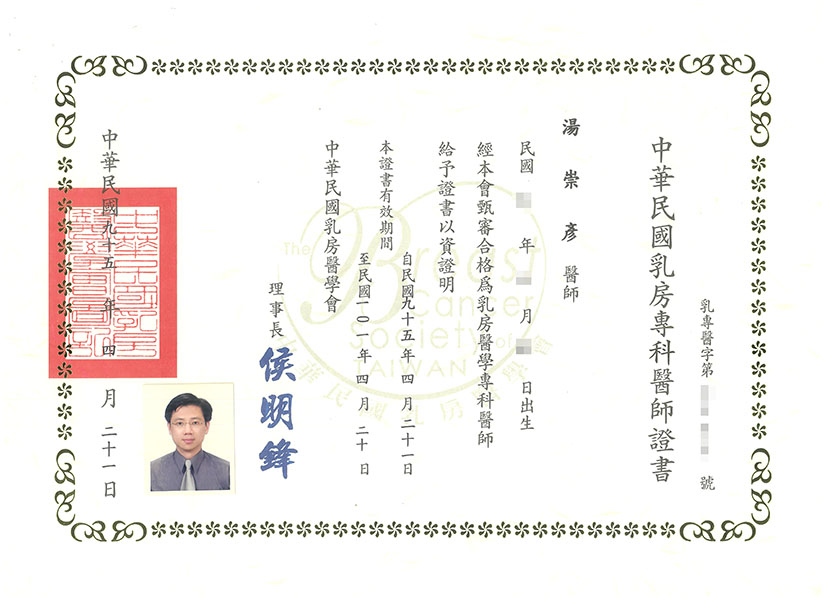 中華民國乳房專科醫師證書
乳專醫字第 號
湯崇彥醫師
民國 年 月 日出生
經本會甄審合格爲乳房醫學專科醫師
給予證書以資證明
本證書有效期間
自民國九十五年四月二十一日
至民國一〇一年四月二十日
中華民國乳房醫學會
理事長 侯明鋒
中華民國九十五年四月二十一日
The
Breast
Cancer
Society of
TAIWAN